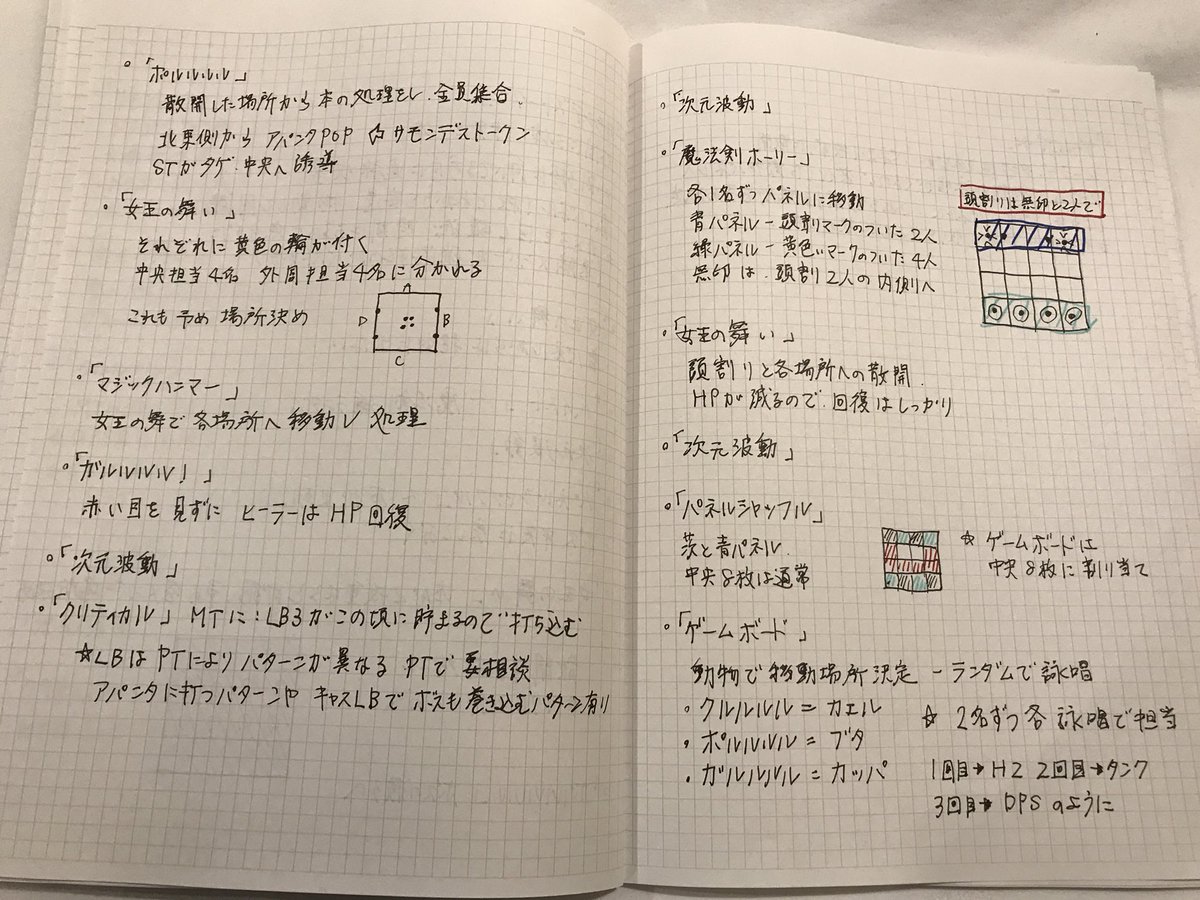 。「ポルルルル」
散開した場所から本の処理をし、全員集合。
北東側から アパンダPOP ⇦サモンデストークン
STがタゲ.中央へ誘導
。「女王の舞い」
それぞれに黄色の輪が付く
中央担当4名 外周担当4名に分かれる
これも予め場所決め
A
D B
C
。「マジックハンマー」
女王の舞で各場所へ移動し処理
。「ガルルルルル！」
赤い目を見ずに ヒーラーはHP回復
。「次元波動」
。「クリティカル」 MTに：LB3がこの頃に貯まるので打ち込む
☆LBはPTによりパターンが異なる PTで要相談
アパンダに打つパターンや キャスLBでボスも巻き込むパターン有り
。「次元波動」
。「魔法剣ホーリー」
各1名ずつパネルに移動
青パネルー頭割りマークのついた2人
緑パネルー黄色いマークのついた4人
無印は、頭割2人の内側へ
頭割りは無印と2人で
。「女王の舞い」
頭割りと各場所への散開.
HPが減るので.回復はしっかり
。「次元波動」
。「パネルシャッフル」
茨と青パネル.
中央8枚は通常
☆ ゲームボードは
中央8枚に割り当て
。「ゲームボード」
動物で移動場所決定 ーランダムで詠唱
・クルルルル＝カエル
・ポルルルル＝ブタ
・ガルルルル＝カッパ
☆ 2名ずつ各詠唱で担当
1回目→H2 2回目→タンク
3回目→DPSのように